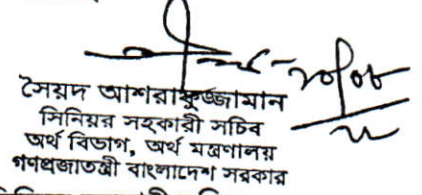 ২০/০৮
সৈয়দ আশরাফুজ্জামান
সিনিয়র সহকারী সচিব
অর্থ বিভাগ, অর্থ মন্ত্রণালয়
গণপ্রজাতন্ত্রী বাংলাদেশ সরকার